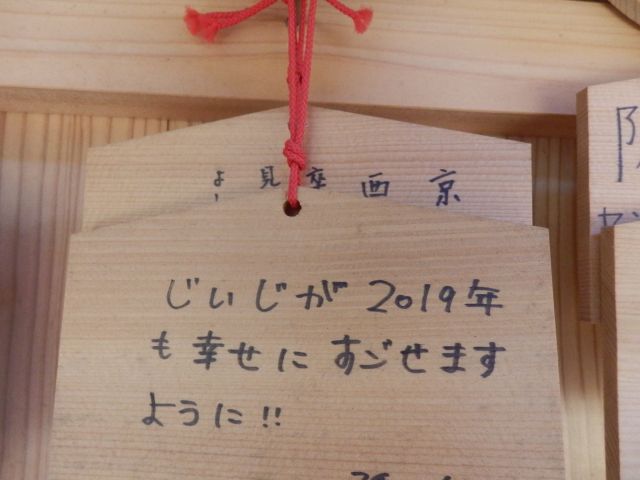 じいじが 2019年
も幸せにすごせます
ように!!
京
画
座
見